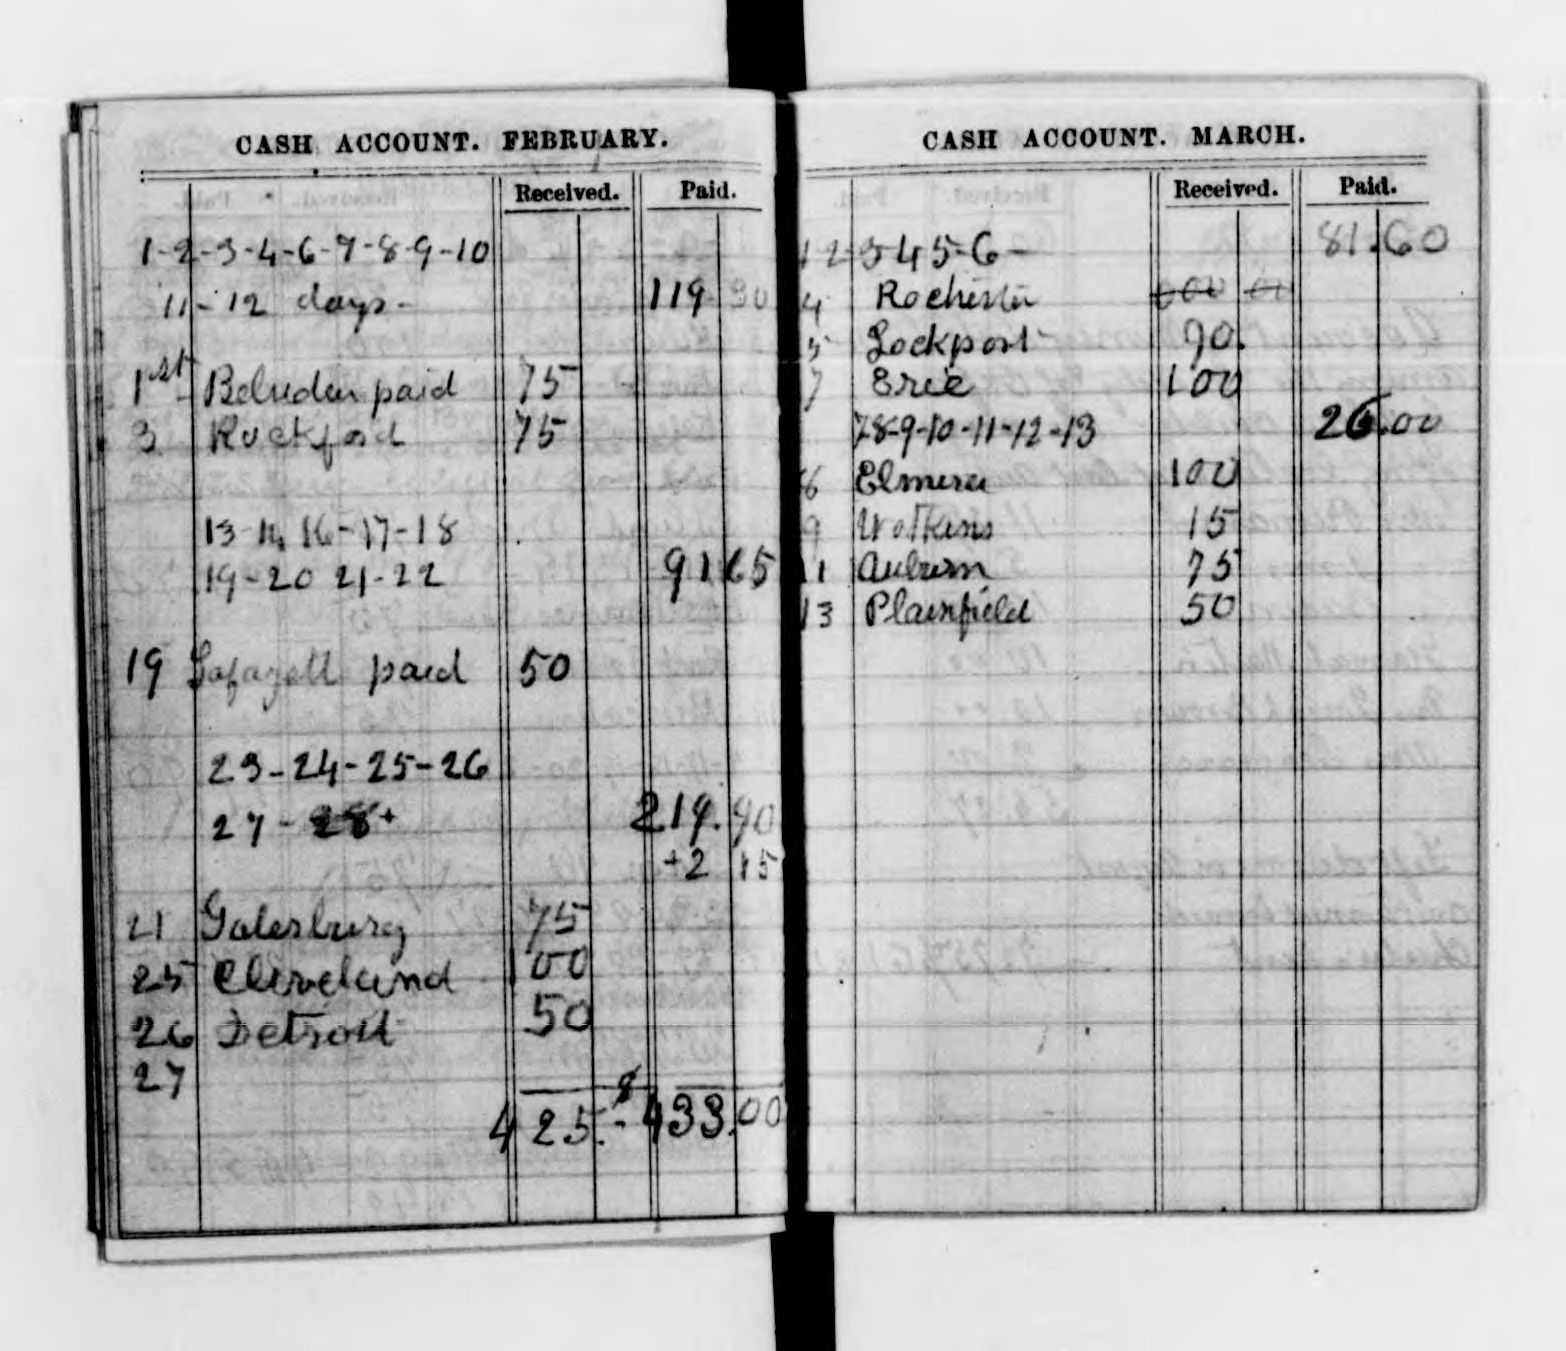 CASH ACCOUNT. FEBRUARY.
Received. Paid.
1-2-3-4-6-7-8-9-10
11-12 days- 119 30
1st Belvidere paid 75
3 Rockford 75
13-14 16-17-18
19-20 21-22 91 65
19 Lafayett paid 50
23-24-25-26
27-28+ 219.90
+2 15
21 Galesburg 75
25 Cleveland 100
26 Detroit 50
27
425.- 433.00
CASH ACCOUNT. MARCH.
Received. Paid.
1 2 3 4 5-6- 81.60
4 Rochester
5 Lockport 90.
7 Erie 100
7 8-9-10-11-12-13 26.00
8 Elmira 100
9 Watkins 15
11 Auburn 75
13 Plainfield 50